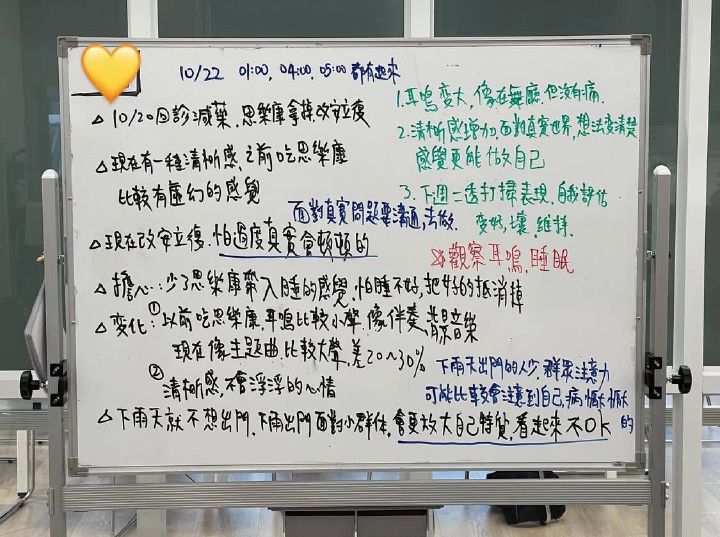 10/22 01:00, 04:00, 05:00 都有起來
△10/20回診減藥, 思樂康拿掉改安立復
△現在有一種清晰感, 之前吃思樂康
比較有虛幻的感覺
面對真實問題要溝通, 去做.
△現在改安立復, 怕過度真實會頓頓的
△擔心: 少了思樂康帶入睡的感覺, 怕睡不好, 把好的抵消掉
△变化: ①以前吃思樂康, 耳鳴比較小聲, 像伴奏、背景音樂
現在像主題曲, 比較大聲, 差20~30%
②清晰感, 不會浮浮的心情
△下雨天就不想出門, 下雨出門面對小群体, 會更放大自己特質, 看起來不OK
下雨天出門的人少, 群眾注意力
可能比較會注意到自己, 病懨懨的
1. 耳鳴变大, 像在舞廳, 但沒有痛.
2. 清晰感增加, 面對真實世界, 想法变清楚
感覺更能做自己
3. 下週二透打掃表現, 自我評估
变好, 壞, 維持.
觀察耳鳴, 睡眠